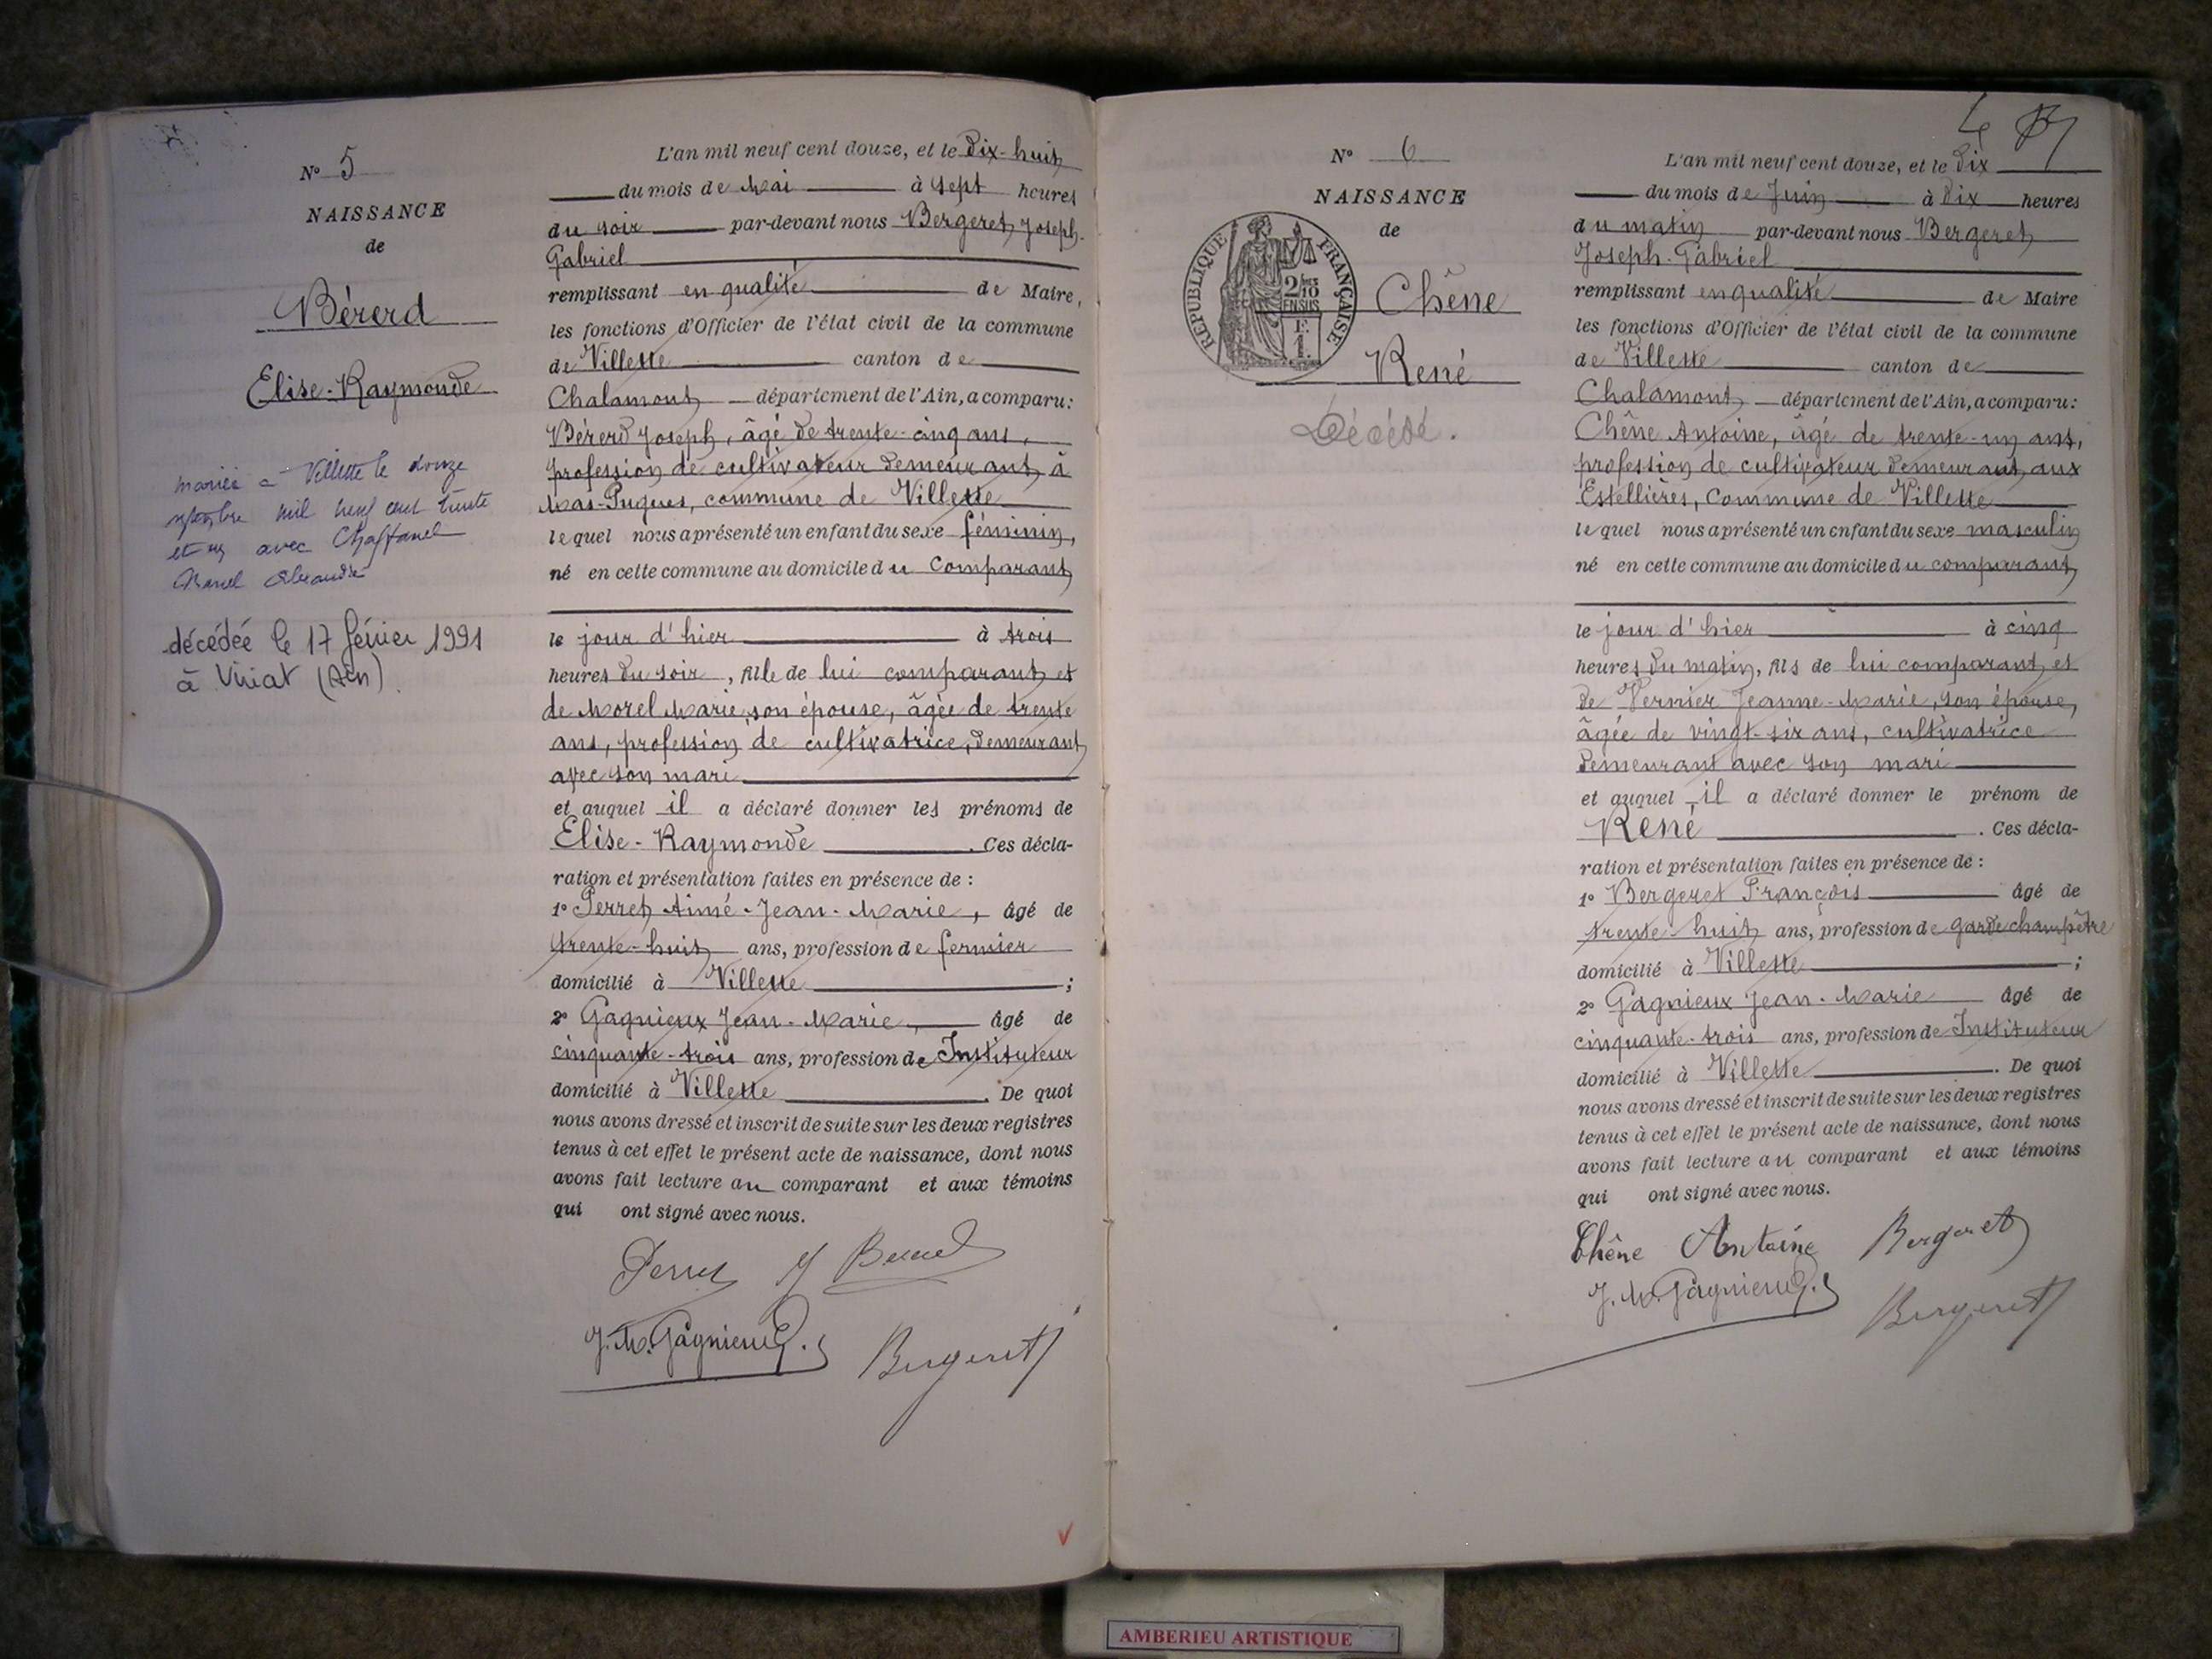 N° 5
NAISSANCE
de
Bérerd
Elise-Raymonde
mariée à Villette le douze
septembre mil neuf cent trente
et un avec Chaffanel
décédée le 17 février 1991
à Viriat (Ain).
L'an mil neuf cent douze, et le dix-huit
du mois de Mai à sept heures
du soir par-devant nous Bergeret Joseph-
Gabriel
remplissant en qualité de Maire,
les fonctions d'Officier de l'état civil de la commune
de Villette canton de
Chalamont département de l'Ain, a comparu:
Bérerd Joseph, âgé de trente-cinq ans,
profession de cultivateur demeurant à
Mas-Pugues, commune de Villette
lequel nous a présenté un enfant du sexe féminin,
né en cette commune au domicile du comparant
le jour d'hier à trois
heures du soir, fille de lui comparant et
de Morel Marie, son épouse, âgée de trente
ans, profession de cultivatrice, demeurant
avec son mari
et auquel il a déclaré donner les prénoms de
Elise-Raymonde. Ces décla-
ration et présentation faites en présence de :
1° Perret Aimé-Jean-Marie, âgé de
trente-huit ans, profession de fermier
domicilié à Villette ;
2° Gagnieux Jean-Marie, âgé de
cinquante-trois ans, profession de Instituteur
domicilié à Villette. De quoi
nous avons dressé et inscrit de suite sur les deux registres
tenus à cet effet le présent acte de naissance, dont nous
avons fait lecture au comparant et aux témoins
qui ont signé avec nous.
Perret
J.M. Gagnieux. Bergeret
N° 6
NAISSANCE
de
REPUBLIQUE FRANÇAISE
2/10
EN SUS
F.
1.
Chêne
René
Décédé.
L'an mil neuf cent douze, et le dix
du mois de Juin à dix heures
du matin par-devant nous Bergeret
Joseph-Gabriel
remplissant en qualité de Maire
les fonctions d'Officier de l'état civil de la commune
de Villette canton de
Chalamont département de l'Ain, a comparu:
Chêne Antoine, âgé de trente-un ans,
profession de cultivateur demeurant aux
Estellières, commune de Villette
lequel nous a présenté un enfant du sexe masculin
né en cette commune au domicile du comparant
le jour d'hier à cinq
heures du matin, fils de lui comparant et
de Vernier Jeanne-Marie, son épouse,
âgée de vingt-six ans, cultivatrice
demeurant avec son mari
et auquel il a déclaré donner le prénom de
René. Ces décla-
ration et présentation faites en présence de :
1° Bergeret François âgé de
trente-huit ans, profession de garde champêtre
domicilié à Villette ;
2° Gagnieux Jean-Marie âgé de
cinquante-trois ans, profession de Instituteur
domicilié à Villette. De quoi
nous avons dressé et inscrit de suite sur les deux registres
tenus à cet effet le présent acte de naissance, dont nous
avons fait lecture au comparant et aux témoins
qui ont signé avec nous.
Chêne Antoine Bergeret
J.M. Gagnieux. Bergeret
AMBERIEU ARTISTIQUE